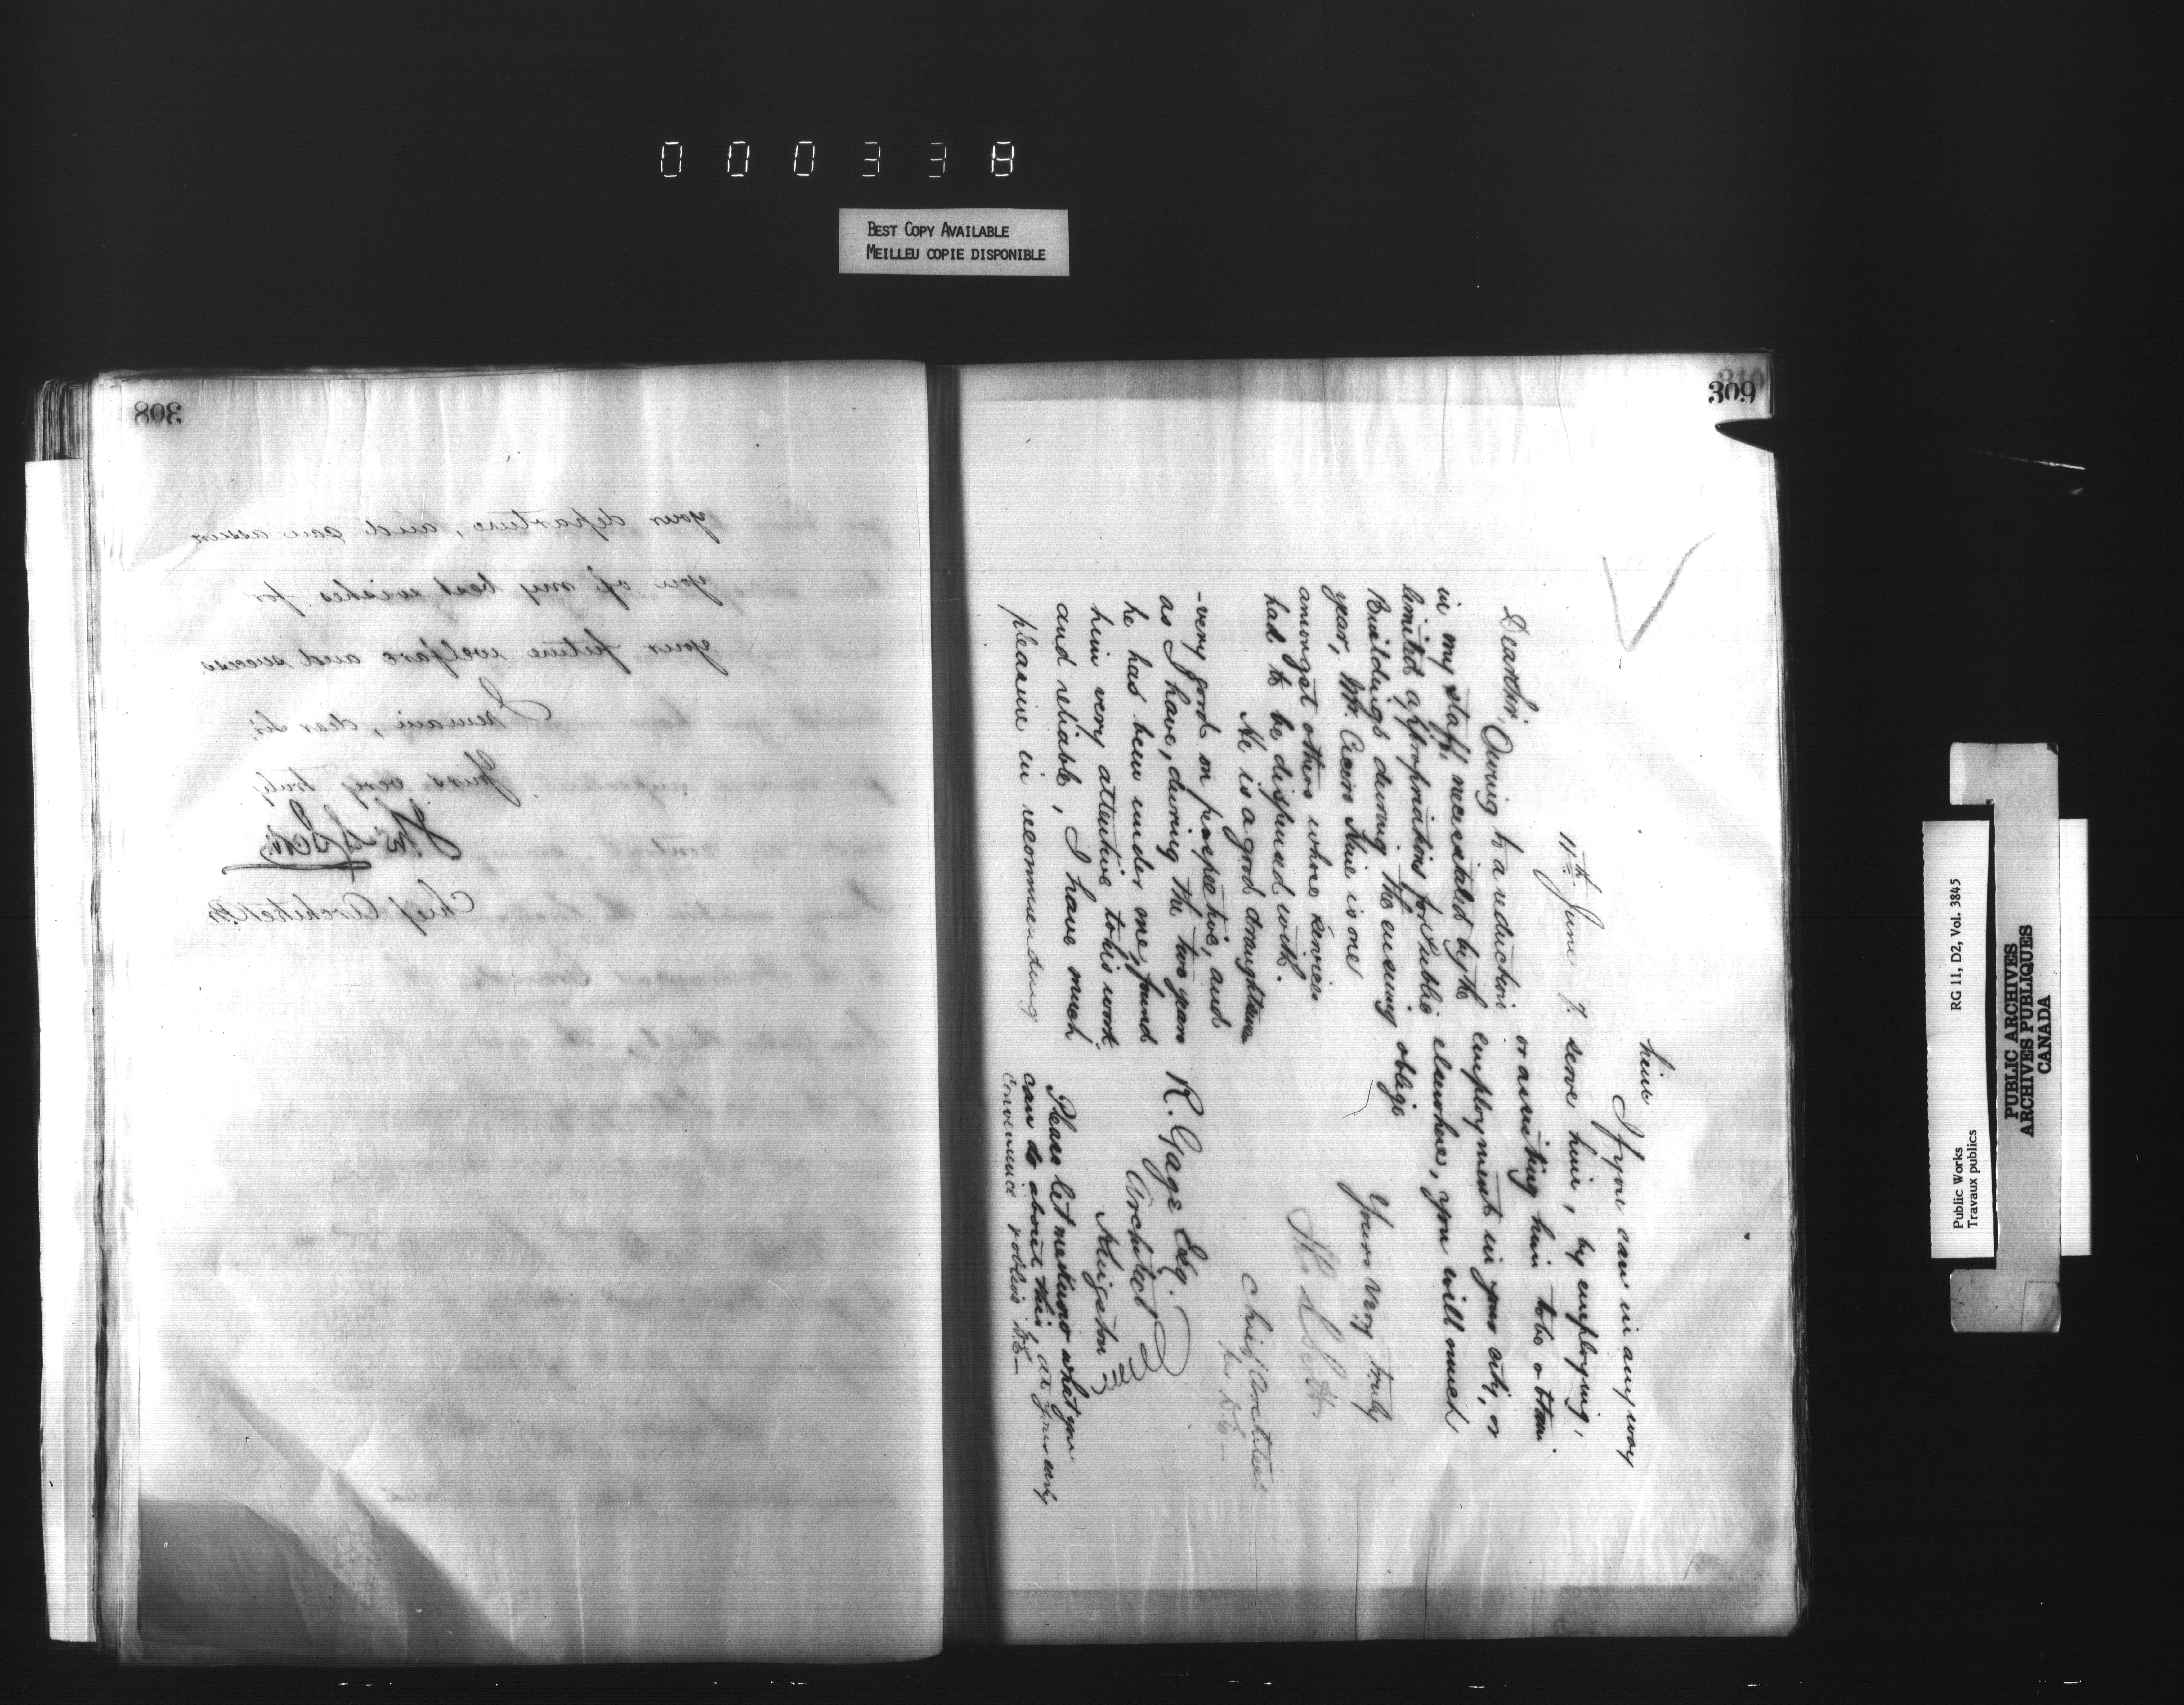 000338
BEST COPY AVAILABLE
MEILLEU COPIE DISPONIBLE
308
your departure, and can assure
you of my best wishes for
your future welfare and success
I remain, dear Sir,
Yours very truly
Thos S Scott
Chief Architect
310
309
11th June 7.
Dear Sir,
Owing to a reduction
in my staff, necessitated by the
limited appropriations for Public
Buildings during the ensuing
year, Mr. is one
amongst others whose services
had to be dispensed with.
He is a good draughtsman
-very good on perspective, and
as I have, during the two years
he has been under me, found
him very attentive to his work
and reliable, I have much
pleasure in recommending
him
If you can in any way
serve him, by employing,
or assisting him to obtain
employment in your city, or
elsewhere, you will much
oblige
Yours very truly
Th S Scott.
Chief Architect
R. Gage Esq.
Architect
Kingston
Please let me know what you
can do about this, at your early
convenience & oblige
Public Works
Travaux publics
RG 11, D2, Vol. 3845
PUBLIC ARCHIVES
ARCHIVES PUBLIQUES
CANADA